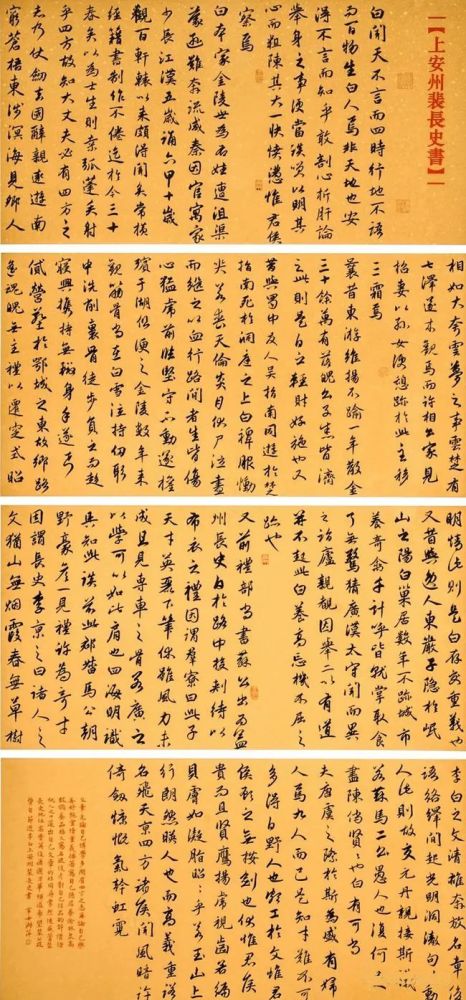 【上安州裴長史書】
白聞天不言而四時行地不語
而百物生白人焉非天地也安
得不言而知乎敢剖心析肝論
舉身之事便當談笑以明其
心而粗陳其大一快憤懣惟君侯
察焉
白本家金陵世為右姓遭沮渠
蒙遜難奔流咸秦因官寓家
少長江漢五歲誦六甲十歲
觀百軒轅以來頗得聞矣常橫
經籍書制作不倦迄於今三十
春矣以為士生則桑弧蓬矢射
乎四方故知大丈夫必有四方之
志乃仗劍去國辭親遠遊南
窮蒼梧東涉溟海見鄉人
相如大夸雲夢之事雲楚有
七澤遂來觀焉而許相公家見
招妻以孫女便憩跡於此至移
三霜焉
曩昔東游維揚不踰一年散金
三十餘萬有落魄公子悉皆濟
之此則是白之輕財好施也又
昔與蜀中友人吳指南同遊於楚
指南死於洞庭之上白禫服慟
哭若喪天倫炎月伏尸泣盡
而繼之以血行路聞者悉皆傷
心猛虎前臨堅守不動遂權
殯于湖側便之金陵數年來
觀筋骨尚在白雪泣持刃躬
申洗削裹骨徒步負之而趨
寢興攜持無輟身手遂丐
貸營葬於鄂城之東故鄉路
遙魂魄無主禮以遷窆式昭
明情此則是白存交重義也
又昔與逸人東嚴子隱於岷
山之陽白巢居數年不跡城市
養奇禽千計呼皆就掌取食
了無驚猜廣漢太守聞而異
之詣廬親覩因舉二以有道
並不起此白養高忘機不屈之
跡也
又前禮部尚書蘇公出為益
州長史白於路中投刺待以
布衣之禮因謂群寮曰此子
天才英麗下筆不休雖風力未
成且見專車之骨若廣之
以學可以相如比肩也四海明識
具知此談前此郡督馬公朝
野豪彥一見禮許為奇才
因謂長史李京之曰諸人之
文猶山無煙霞春無草樹
李白之文清雄奔放名章俊
語絡繹間起光明洞澈句句動
人此則故交元丹親接斯議
若蘇馬二公愚人也復何足
盡陳倘賢賢也白有可尚
夫唐虞之際於斯為盛有婦
人焉九人而已是知才難不可
多得白野人也頗工於文惟君
侯顧之無按劍也伏惟君侯
貴而且賢鷹揚虎視齒若編
貝膚如凝脂昭昭乎若玉山上
行朗然映人也而高義重諾
名飛天京四方諸侯聞風暗許
倚劍慷慨氣幹虹霓